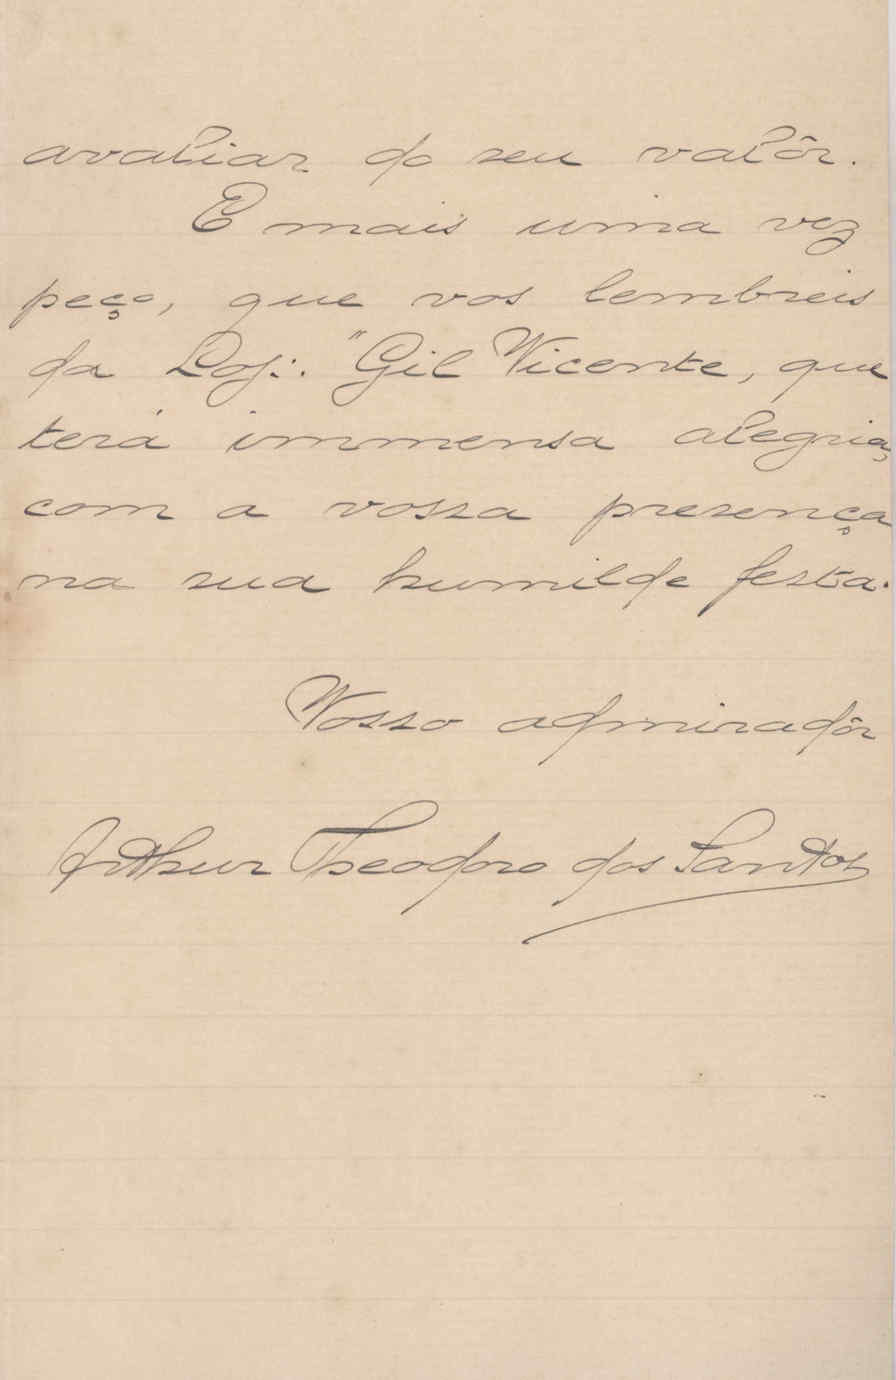 avaliar do seu valôr.
E mais uma vez
peço, que vos lembreis
da Loj∴ "Gil Vicente, que
terá immensa alegria,
com a vossa presença
na sua humilde festa.
Vosso admiradôr
Arthur Theodoro dos Santos